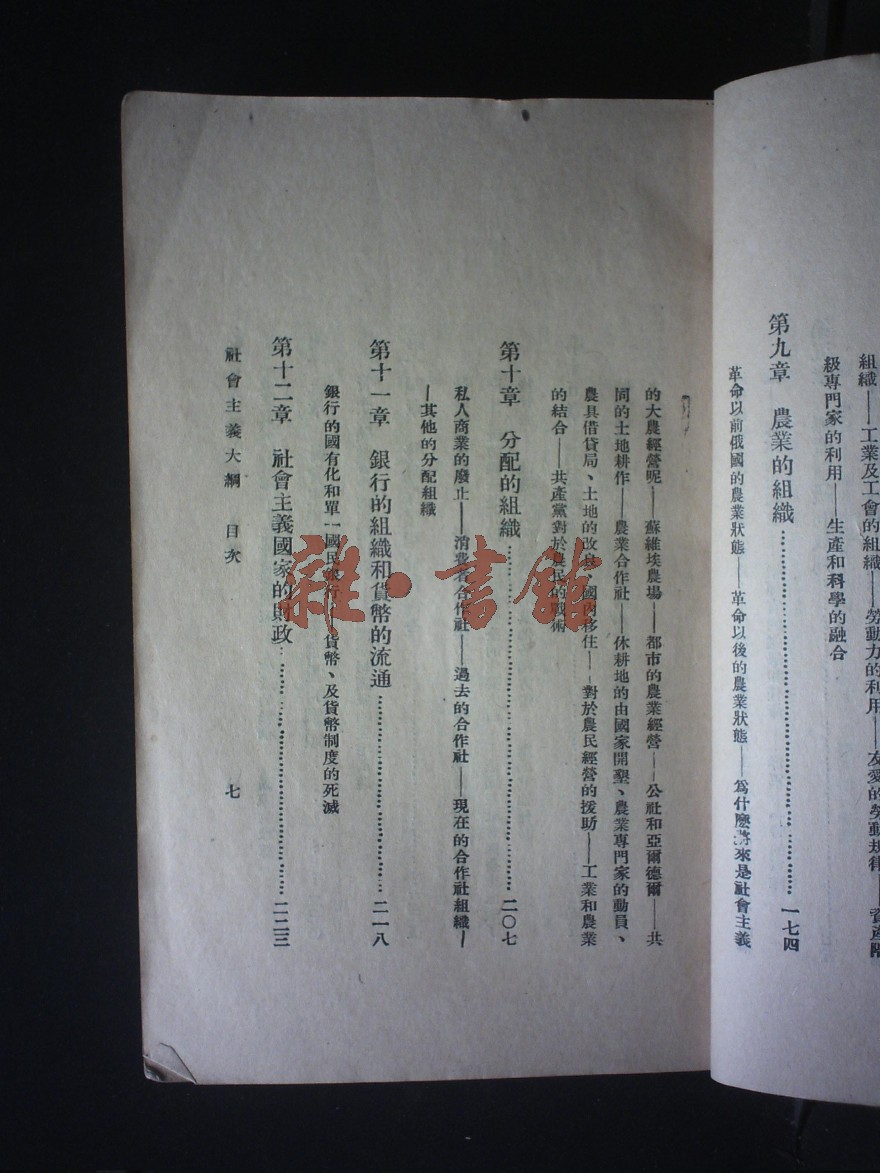 組織——工業及工會的組織——勞動力的利用——友愛的勞動規律——資產階
級專門家的利用——生產和科學的融合
第九章　農業的組織……一七四
革命以前俄國的農業狀態——革命以後的農業狀態——爲什麼將來是社會主義
的大農經營呢——蘇維埃農場——都市的農業經營——公社和亞爾德爾——共
同的土地耕作——農業合作社——休耕地的由國家開墾、農業專門家的動員、
農具借貸局、土地的改良、國內移住——對於農民經營的援助——工業和農業
的結合——共產黨對於農民的戰術
第十章　分配的組織……二〇七
私人商業的廢止——消費者合作社——過去的合作社——現在的合作社組織—
—其他的分配組織
第十一章　銀行的組織和貨幣的流通……二一八
銀行的國有化和單一國民銀行——貨幣、及貨幣制度的死滅
第十二章　社會主義國家的財政……二二三
社會主義大綱　目次
七
雜·書館